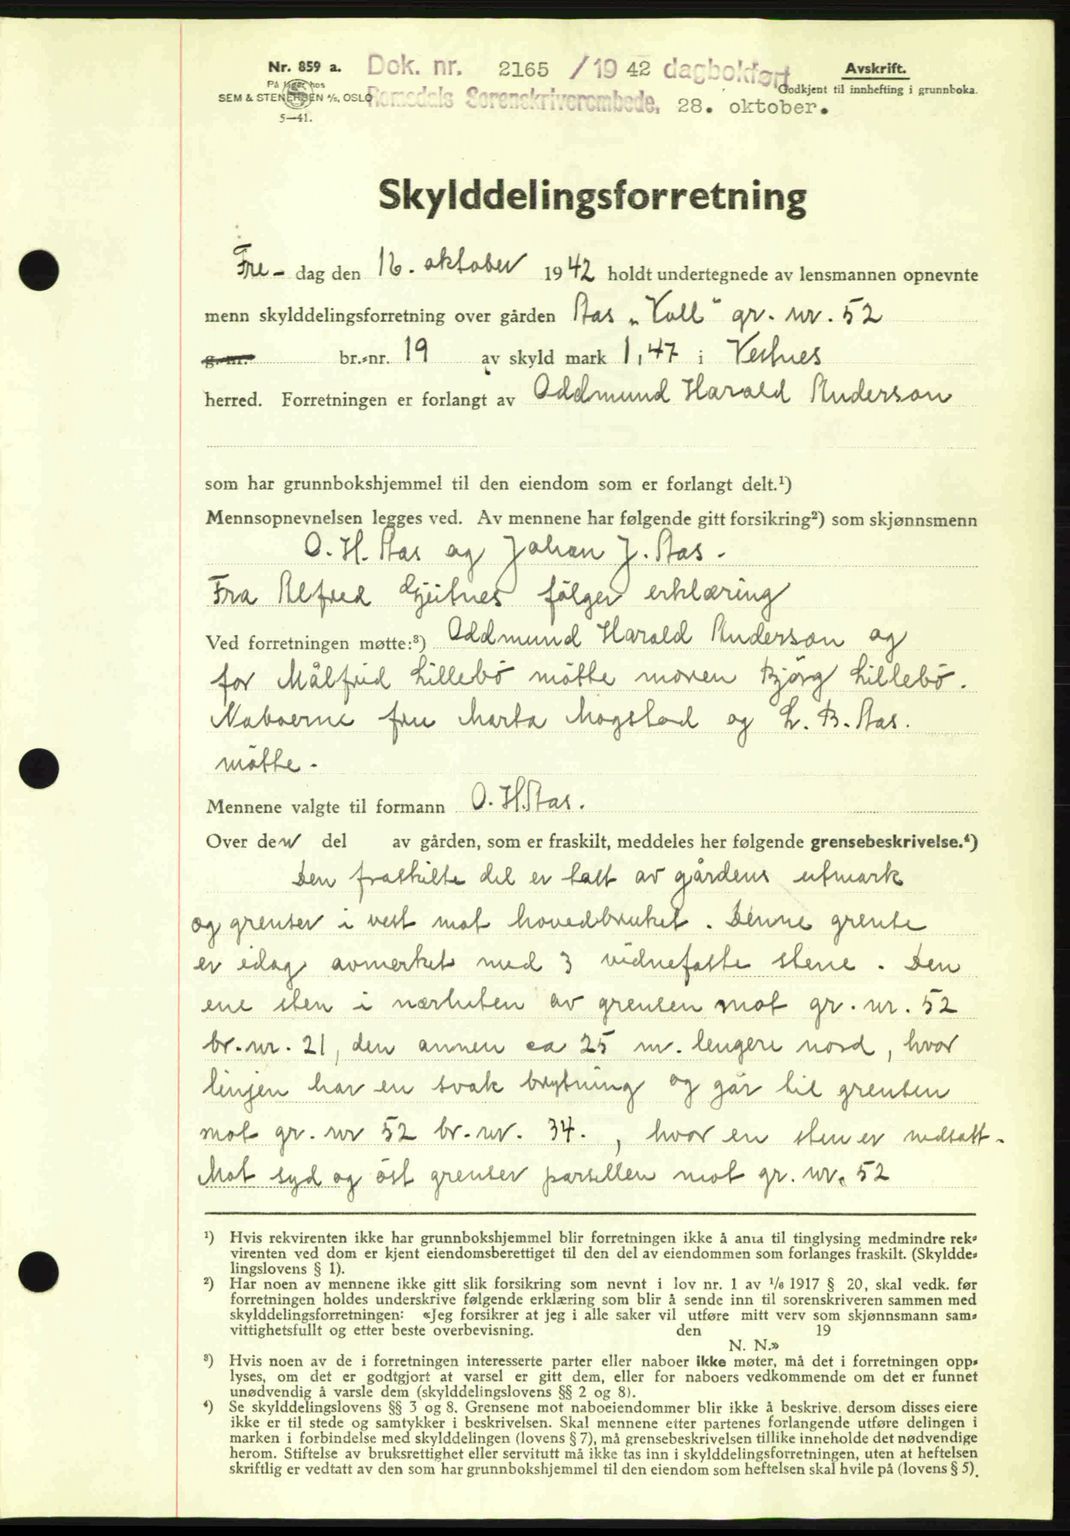 Nr. 859 a.
På lager hos
SEM & STENERSEN A/S, OSLO
5—41.
Dok. nr. 2165 /19 42 dagbokført
Romsdals Sorenskriverembede, 28. oktober.
Avskrift.
Godkjent til innhefting i grunnboka.
Skylddelingsforretning
Fre- dag den 16. oktober 1942 holdt undertegnede av lensmannen opnevnte
menn skylddelingsforretning over gården Aas „Voll" gr. nr. 52
g.nr. br.-nr. 19 av skyld mark 1,47 i Vestnes
herred. Forretningen er forlangt av Oddmund Harald Anderson
som har grunnbokshjemmel til den eiendom som er forlangt delt.¹)
Mennsopnevnelsen legges ved. Av mennene har følgende gitt forsikring²) som skjønnsmenn
O. H. Aas og Johan J. Aas.
Fra Alfred Gjeitnes følger erklæring
Ved forretningen møtte:³) Oddmund Harald Anderson og
for Målfrid Lillebö mötte moren Bjørg Lillebö.
Naboerne fru Marta Mogstad og L. B. Aas.
mötte.
Mennene valgte til formann O. H. Aas.
Over den del av gården, som er fraskilt, meddeles her følgende grensebeskrivelse.⁴)
Den fraskilte del er tatt av gårdens utmark
og grenser i vest mot hovedbruket. Denne grense
er idag avmerket med 3 vidnefaste stene. Den
ene sten i nærheten av grensen mot gr. nr. 52
br. nr. 21, den annen ca 25 m. lengere nord, hvor
linjen har en svak brytning og går til grensen
mot gr. nr 52 br. nr. 34., hvor en sten er nedsatt.
Mot syd og öst grenser parsellen mot gr. nr. 52
¹) Hvis rekvirenten ikke har grunnbokshjemmel blir forretningen ikke å anta til tinglysing medmindre rek-
virenten ved dom er kjent eiendomsberettiget til den del av eiendommen som forlanges fraskilt. (Skyldde-
lingslovens § 1).
²) Har noen av mennene ikke gitt slik forsikring som nevnt i lov nr. 1 av 1/6 1917 § 20, skal vedk. før
forretningen holdes underskrive følgende erklæring som blir å sende inn til sorenskriveren sammen med
skylddelingsforretningen: «Jeg forsikrer at jeg i alle saker vil utføre mitt verv som skjønnsmann sam-
vittighetsfullt og etter beste overbevisning. den 19
N. N.»
³) Hvis noen av de i forretningen interesserte parter eller naboer ikke møter, må det i forretningen opp-
lyses, om det er godtgjort at varsel er gitt dem, eller for naboers vedkommende om det er funnet
unødvendig å varsle dem (skylddelingslovens §§ 2 og 8).
⁴) Se skylddelingslovens §§ 3 og 8. Grensene mot naboeiendommer blir ikke å beskrive, dersom disses eiere
ikke er til stede og samtykker i beskrivelsen. Skal mennene etter partenes forlangende utføre delingen i
marken i forbindelse med skylddelingen (lovens § 7), må grensebeskrivelsen tillike inneholde det nødvendige
herom. Stiftelse av bruksrettighet eller servitutt må ikke tas inn i skylddelingsforretningen, uten at heftelsen
skriftlig er vedtatt av den som har grunnbokshjemmel til den eiendom som heftelsen skal hvile på (lovens § 5).